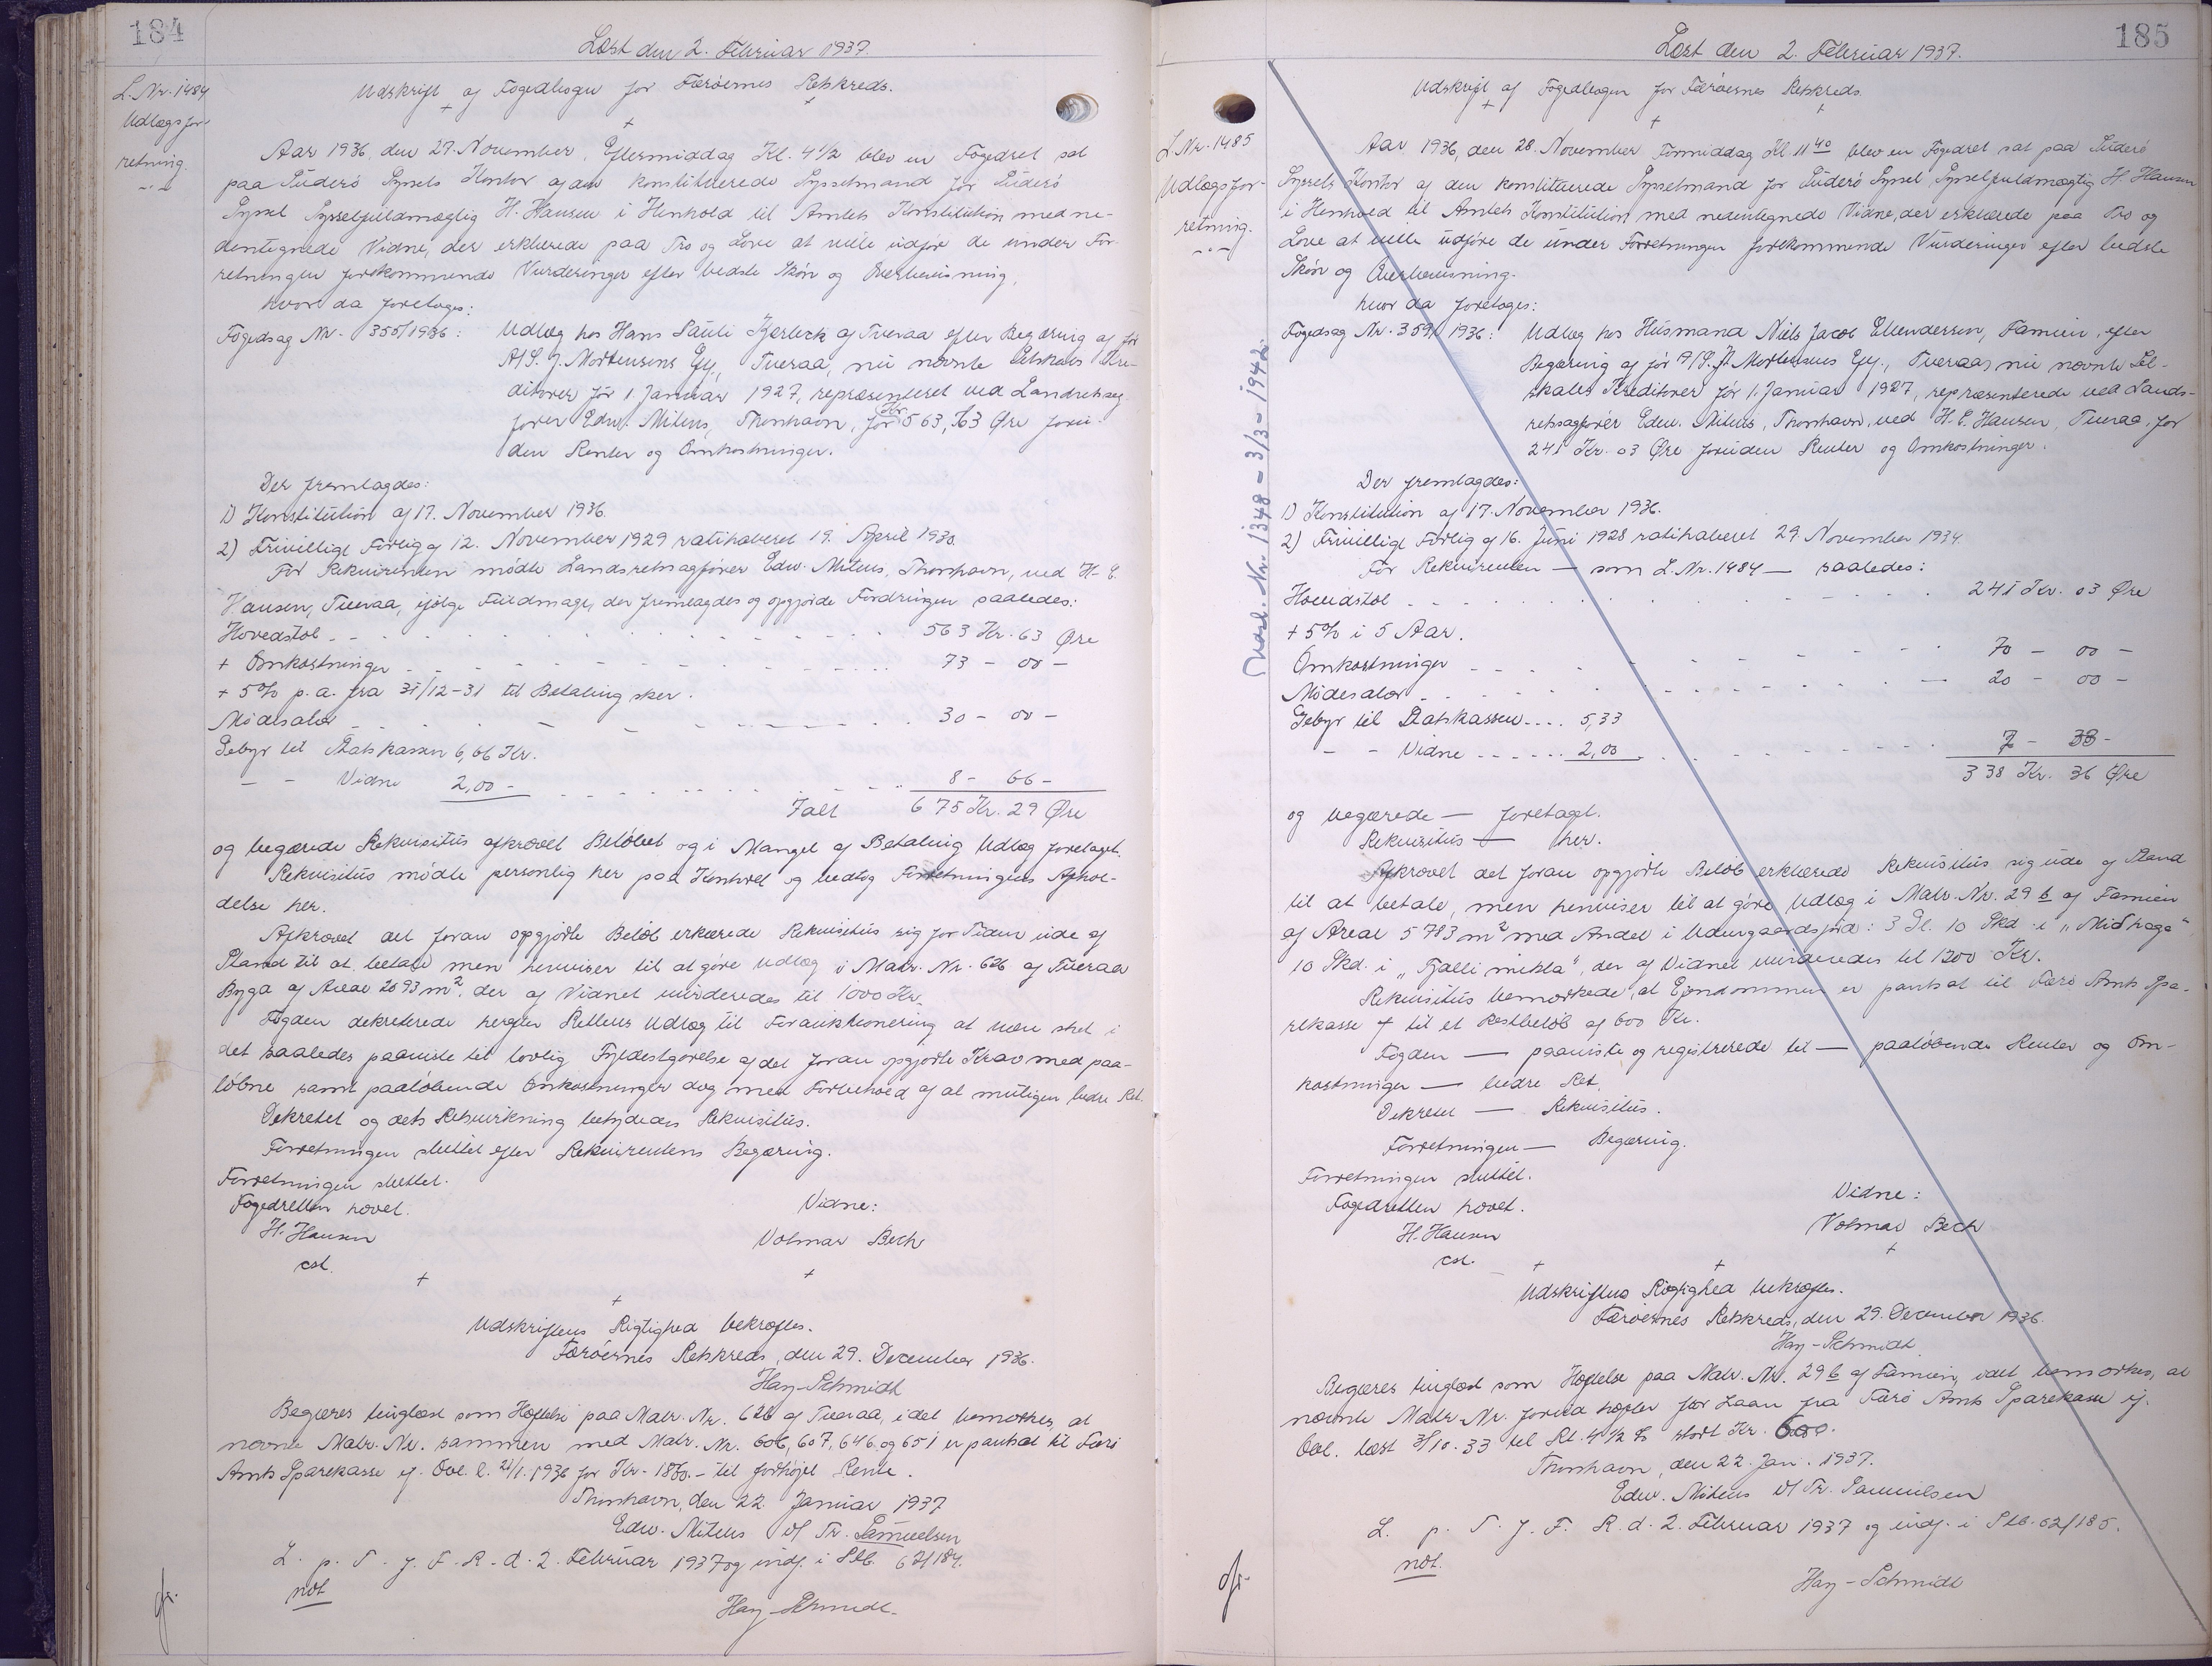 184
Læst den 2. Februar 1937.
L. Nr. 1484
Udlægsfor-
retning.
Udskrift af Fogedbogen for Færøernes Retskreds.
Aar 1936, den 27. November, Eftermiddag Kl. 4 1/2 blev en Fogedret sat
paa Suderø Syssels Kontor af den konstituerede Sysselmand for Suderø
Syssel Sysselfuldmægtig H. Hansen i Henhold til Amtets Konstitution med ne-
dentegnede Vidne, der erklærede paa Tro og Love at ville udføre de under For-
retningen forekommende Vurderinger efter bedste Skøn og Overbevisning,
hvor da foretoges:
Fogedsag Nr. 355/1936: Udlæg hos Hans Pauli Kjerbeck af Tveraa efter Begæring af for
A/S. J. Mortensens Eff., Tveraa, nu nævnte Selskabs Kre-
ditorer før 1. Januar 1927, repræsenteret ved Landretssag-
fører Edw. Mitens, Thorshavn, for Kr. 563,63 Øre foru-
den Renter og Omkostninger.
Der fremlagdes:
1) Konstitution af 17. November 1936.
2) Frivilligt Forlig af 12. November 1929 ratihaberet 19. April 1930.
For Rekvirenten mødte Landsretssagfører Edw. Mitens, Thorshavn, ved H. E.
Hansen, Tveraa, ifølge Fuldmagt, der fremlagdes og opgjorde Fordringen saaledes:
Hovedstol 563 Kr. 63 Øre
+ Omkostninger 73 - 00 -
+ 5% p. a. fra 31/12-31 til Betaling sker.
Mødesalær 30 - 00 -
Gebyr til Statskassen 6,66 Kr.
- - Vidne 2,00 - 8 - 66 -
Ialt 675 Kr. 29 Øre
og begærede Rekvisitus afkrævet Beløbet og i Mangel af Betaling Udlæg foretaget.
Rekvisitus mødte personlig her paa Kontoret og vedtog Forretningens Afhol-
delse her.
Afkrævet det foran opgjorte Beløb erkærede Rekvisitus sig for Tiden ude af
Stand til at betale men henviser til at gøre Udlæg i Matr. Nr. 626 af Tveraa
Byga af Areal 2093 m², der af Vidnet vurderedes til 1000 Kr.
Fogden dekreterede herefter Rettens Udlæg til Forauktionering at være sket i
det saaledes paaviste til lovlig Fyldestgørelse af det foran opgjorte Krav med paa-
løbne samt paaløbende Omkostninger dog med Forbehold af al muligen bedre Ret.
Dekretet og dets Retsvirkning betydedes Rekvisitus.
Forretningen sluttet efter Rekvirentens Begæring.
Forretningen sluttet.
Fogedretten hævet. Vidne:
H. Hansen Volmar Bech
cst.
Udskriftens Rigtighed bekræftes.
Færøernes Retskreds, den 29. December 1936.
Hay-Schmidt
Begæres tinglæst som Hæftelse paa Matr. Nr. 626 af Tveraa, idet bemærkes, at
nævnte Matr. Nr. sammen med Matr. Nr. 606, 607, 646 og 651 er pantsat til Færø
Amts Sparekasse ifl. Obl. l. 21/1. 1936 for Kr. 1860.- til forhøjet Rente.
Thorshavn, den 22. Januar 1937
Edw. Mitens v/ Tr. Samuelsen
L. p. T. f. F. R. d. 2. Februar 1937 og indf. i Skb. 62/184.
not
Hay-Schmidt.
185
Læst den 2. Februar 1937.
L. Nr. 1485
Udlægsfor-
retning.
Udsl. Nr. 1348 - 3/3 - 1942.
Udskrift af Fogedbogen for Færøernes Retskreds.
Aar 1936, den 28. November Formiddag Kl. 11 40 blev en Fogedret sat paa Suderø
Syssels Kontor af den konstituerede Sysselmand for Suderø Syssel, Sysselfuldmægtig H. Hansen
i Henhold til Amtets Konstitution med nedentegnede Vidne, der erklærede paa Tro og
Love at ville udføre de under Forretningen forekommende Vurderinger efter bedste
Skøn og Overbevisning.
hvor da foretoges:
Fogedsag Nr. 359/1936: Udlæg hos Husmand Niels Jacob Ellendersen, Famien, efter
Begæring af for A/S. J. Mortensens Eff., Tveraa, nu nævnte Sel-
skabs Kreditorer før 1. Januar 1927, repræsenterede ved Lands-
retssagfører Edw. Mitens, Thorshavn, ved H. E. Hansen, Tveraa, for
241 Kr. 03 Øre foruden Renter og Omkostninger.
Der fremlagdes:
1) Konstitution af 17. November 1936.
2) Frivilligt Forlig af 16. Juni 1928 ratihaberet 29. November 1934.
For Rekvirenten — som L. Nr. 1484 — saaledes:
Hovedstol 241 Kr. 03 Øre
+ 5% i 5 Aar.
Omkostninger 70 - 00 -
Mødesalær 20 - 00 -
Gebyr til Statskassen 5,33
- - Vidne 2,00 7 - 33 -
338 Kr. 36 Øre
og begærede — foretaget.
Rekvisitus — her.
Afkrævet det foran opgjorte Beløb erklærede Rekvisitus sig ude af Stand
til at betale, men henviser til at gøre Udlæg i Matr. Nr. 29 b af Famien
af Areal 5783 m² med Andel i Udengaardsjord: 3 Gl. 10 Skd. i „Miðhaga"
10 Skd. i „Fjalli mikla", der af Vidnet vurderedes til 1200 Kr.
Rekvisitus bemærkede, at Ejendommen er pantsat til Færø Amts Spa-
rekasse til et Restbeløb af 600 Kr.
Fogden — paaviste og registrerede til — paaløbende Renter og Om-
kostninger — bedre Ret.
Dekretet — Rekvisitus.
Forretningen — Begæring.
Forretningen sluttet.
Fogedretten hævet. Vidne:
H. Hansen Volmar Bech
cst.
Udskriftens Rigtighed bekræftes.
Færøernes Retskreds, den 29. December 1936.
Hay-Schmidt
Begæres tinglæst som Hæftelse paa Matr. Nr. 29 b af Famien, idet bemærkes, at
nævnte Matr. Nr. forud hæfter for Laan fra Færø Amts Sparekasse ifl.
Obl. læst 3/10. 33 til Rt. 4 1/2 % stort Kr. 600.
Thorshavn, den 22. Jan. 1937.
Edw. Mitens v/ Tr. Samuelsen
L. p. T. f. F. R. d. 2. Februar 1937 og indf. i Skb. 62/185.
not.
Hay-Schmidt